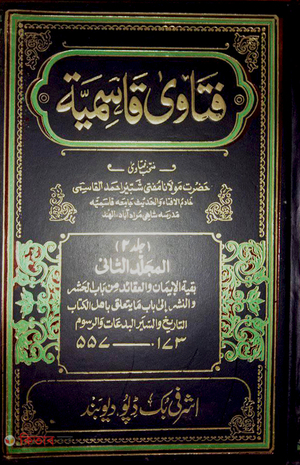 فتاویٰ قاسمیۃ
منتخب فتاویٰ
حضرت مولانا مفتی شبیر احمد القاسمی
خادم الافتاء والحدیث جامعہ قاسمیہ
مدرسہ شاہی مراد آباد، الہند
(جلد ۲)
المجلد الثانی
بقیۃ الإیمان والعقائد من باب الحشر
والنشر إلی باب ما یتعلق باھل الکتاب
التاریخ والسیر البدعات والرسوم
۱۷۳ ــــ ۵۵۷
اشرفی بک ڈپو دیوبند